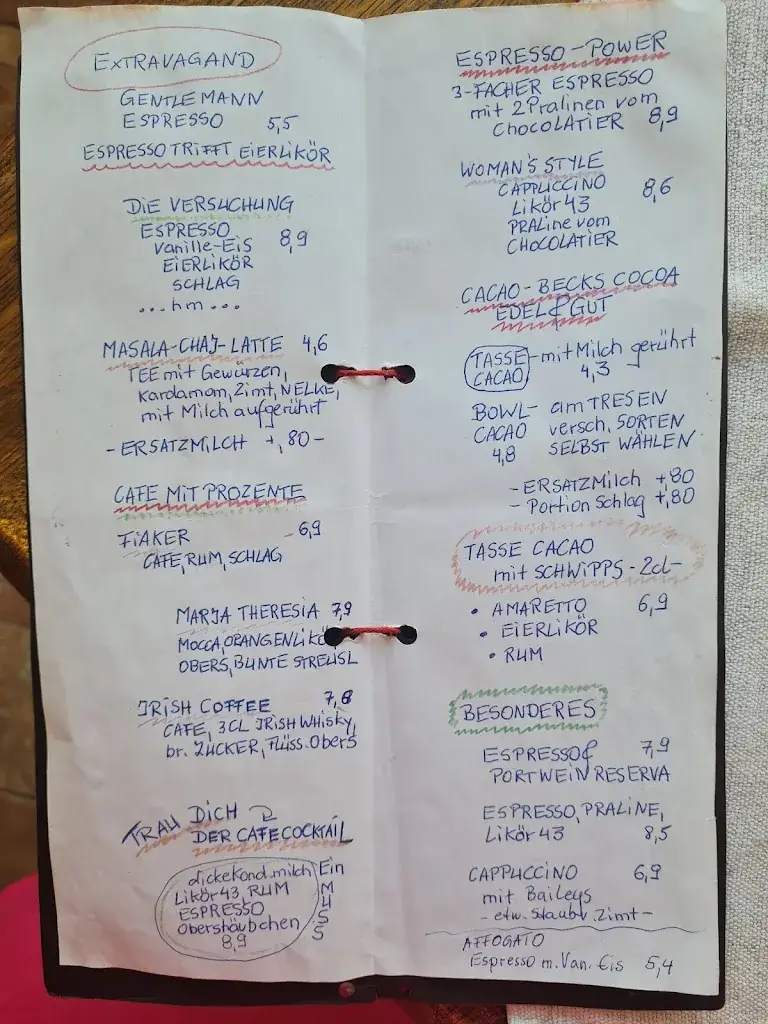 EXTRAVAGAND
GENTLEMANN
ESPRESSO 5,5
ESPRESSO TRIFFT EIERLIKÖR
DIE VERSUCHUNG
ESPRESSO
Vanille-Eis 8,9
EIERLIKÖR
SCHLAG
...hm...
MASALA-CHAJ-LATTE 4,6
TEE mit Gewürzen,
Kardamom, Zimt, NELKE,
mit Milch aufgerührt
- ERSATZMILCH +,80 -
CAFE MIT PROZENTE
FIAKER 6,9
CAFE, RUM, SCHLAG
MARJA THERESIA 7,9
MOCCA, ORANGENLIKÖ
OBERS, BUNTE STREUSL
IRISH COFFEE 7,8
CAFE, 3CL IRISH WHISKY,
br. ZUCKER, Flüss. Obers
TRAU DICH
DER CAFECOCKTAIL
dickeKond.milch
Likör 43, RUM
ESPRESSO
Obershäubchen
8,9
Ein
MUSS
ESPRESSO-POWER
3-FACHER ESPRESSO
mit 2 Pralinen vom
CHOCOLATIER 8,9
WOMAN'S STYLE
CAPPUCCINO 8,6
Likör 43
PRALine vom
CHOCOLATIER
CACAO-BECKS COCOA
EDEL & GUT
TASSE - mit Milch gerührt
CACAO 4,3
BOWL- am TRESEN
CACAO versch. SORTEN
4,8 SELBST WÄHLEN
- ERSATZMilch +,80
- Portion Schlag +,80
TASSE CACAO
mit SCHWIPPS - 2cl -
• AMARETTO 6,9
• EIERLIKÖR
• RUM
BESONDERES
ESPRESSO & 7,9
PORTWEIN RESERVA
ESPRESSO, PRALINE,
Likör 43 8,5
CAPPUCCINO 6,9
mit Baileys
- etw. Staubz. Zimt -
AFFOGATO
Espresso m. Van. Eis 5,4